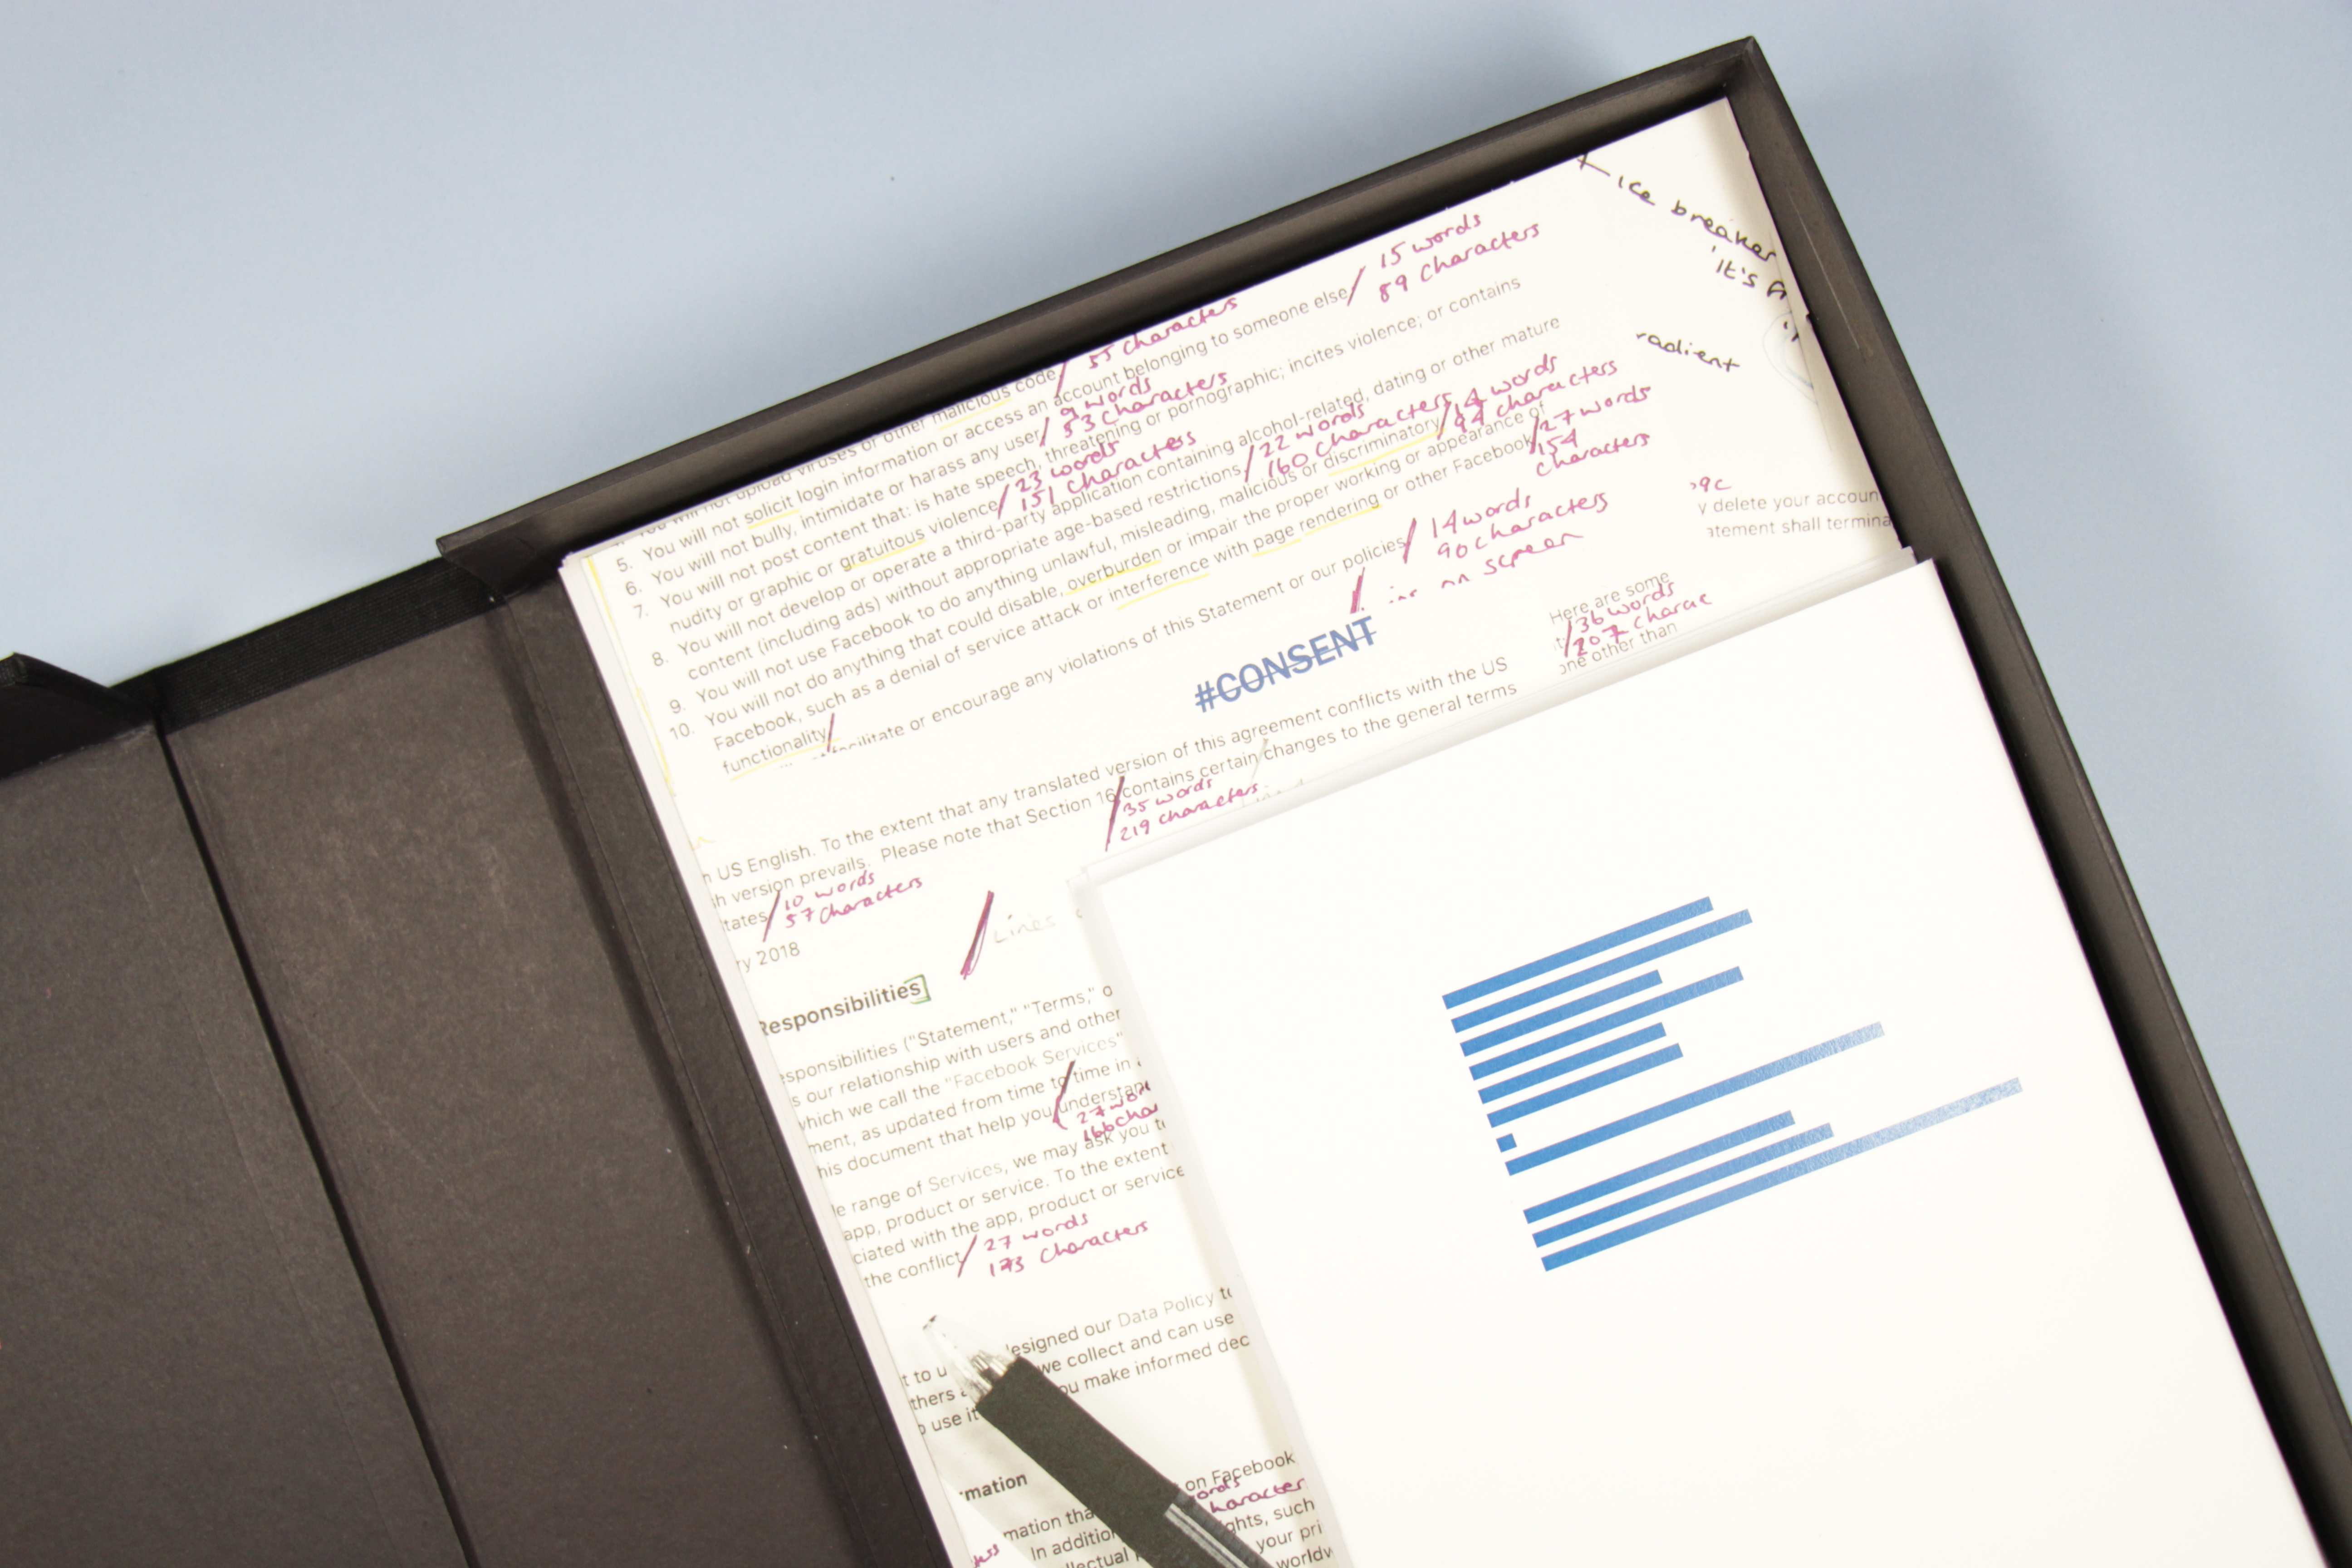 ice breaker
'It's
radient
15 words
89 characters
55 characters
other malicious code
5. You will not solicit login information or access an account belonging to someone else
9 words
53 characters
6. You will not bully, intimidate or harass any user
7. You will not post content that: is hate speech, threatening or pornographic; incites violence; or contains
nudity or graphic or gratuitous violence
23 words
151 characters
8. You will not develop or operate a third-party application containing alcohol-related, dating or other mature
content (including ads) without appropriate age-based restrictions
22 words
160 characters
9. You will not use Facebook to do anything unlawful, misleading, malicious or discriminatory
14 words
94 characters
10. You will not do anything that could disable, overburden or impair the proper working or appearance of
Facebook, such as a denial of service attack or interference with page rendering or other Facebook
functionality
27 words
154
characters
facilitate or encourage any violations of this Statement or our policies
14 words
90 characters
on screen
y delete your accoun
atement shall termina
#CONSENT
Here are some
36 words
207 charac
one other than
n US English. To the extent that any translated version of this agreement conflicts with the US
h version prevails. Please note that Section 16 contains certain changes to the general terms
tates
35 words
219 characters
10 words
57 characters
ry 2018
Lines
Responsibilities
sponsibilities ("Statement," "Terms," o
s our relationship with users and other
which we call the "Facebook Services"
ment, as updated from time to time in
his document that help you understan
27 wor
166 cha
le range of Services, we may ask you t
app, product or service. To the extent
ciated with the app, product or service
the conflict
27 words
173 characters
t to u esigned our Data Policy to
thers we collect and can use
o use it ou make informed dec
mation
on Facebook
ords
haracter
mation tha ghts, such
In additio your pri
ellectual worldw